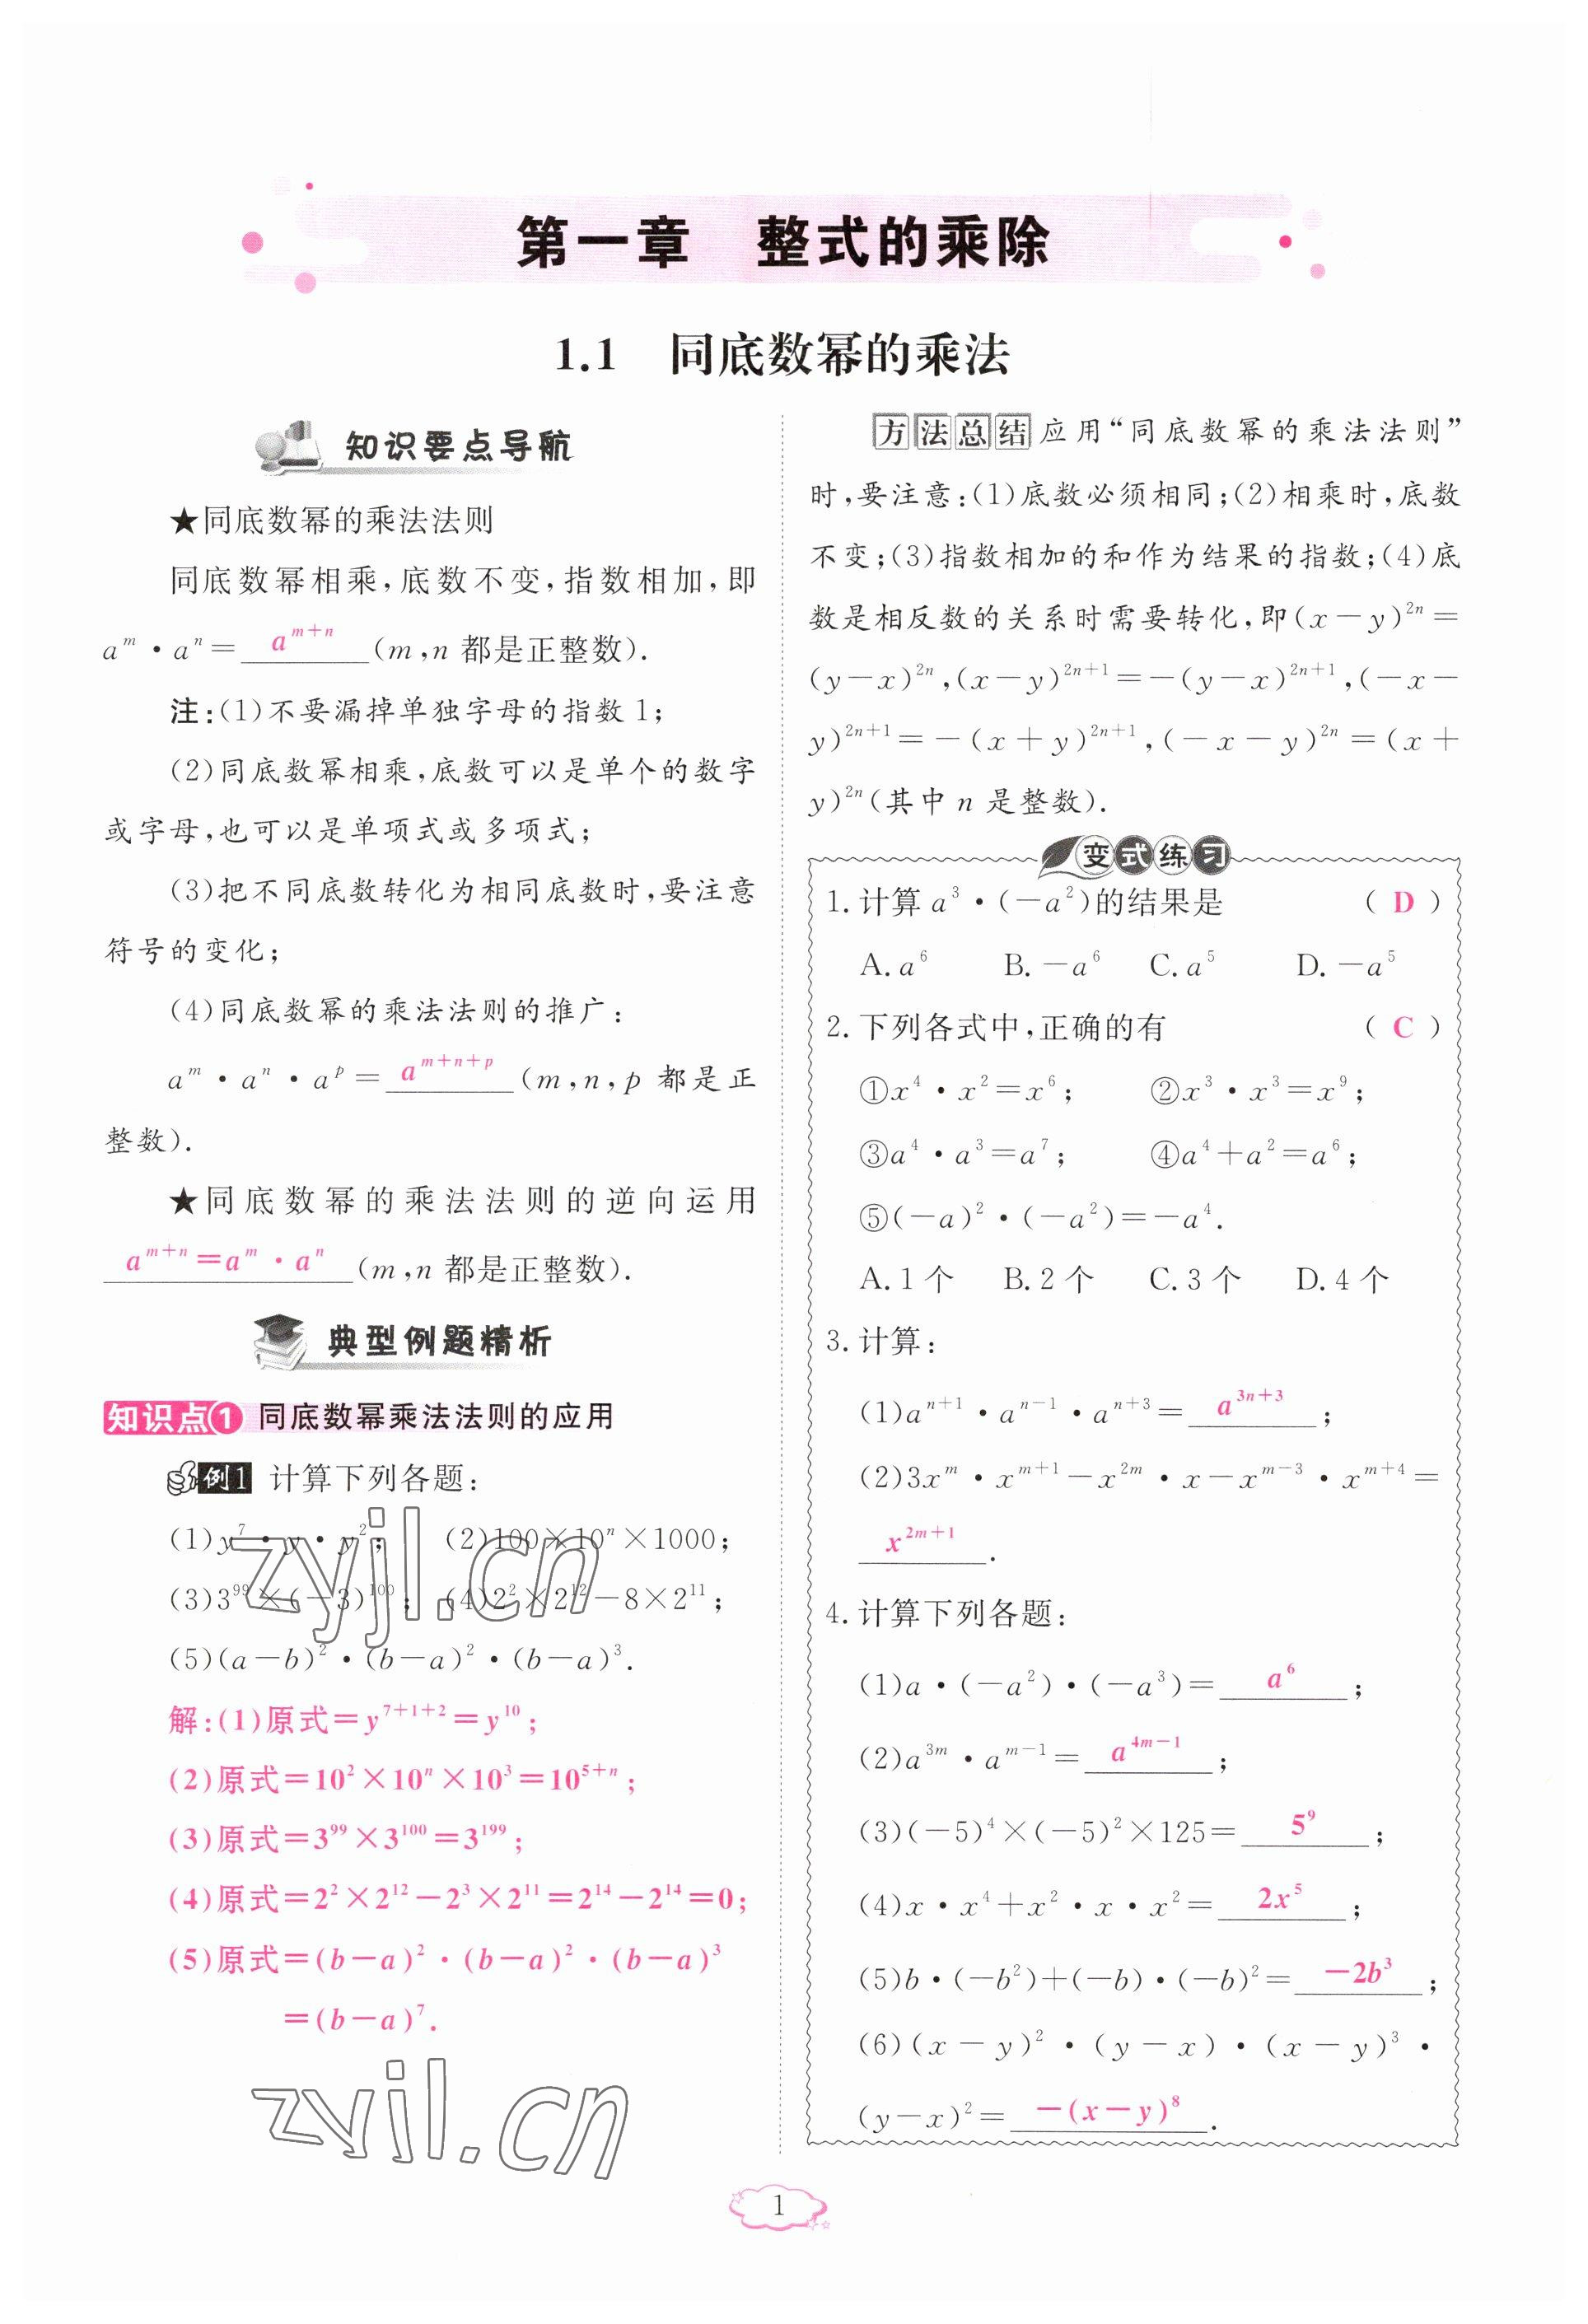 第一章 整式的乘除
1.1 同底数幂的乘法
知识要点导航
★同底数幂的乘法法则
同底数幂相乘,底数不变,指数相加,即
a^m·a^n=a^{m+n}(m,n都是正整数).
注:(1)不要漏掉单独字母的指数1;
(2)同底数幂相乘,底数可以是单个的数字
或字母,也可以是单项式或多项式;
(3)把不同底数转化为相同底数时,要注意
符号的变化;
(4)同底数幂的乘法法则的推广:
a^m·a^n·a^p=a^{m+n+p}(m,n,p都是正
整数).
★同底数幂的乘法法则的逆向运用
a^{m+n}=a^m·a^n(m,n都是正整数).
典型例题精析
知识点1 同底数幂乘法法则的应用
例1 计算下列各题:
(1)y^7·y·y^2; (2)100×10^n×1000;
(3)3^{99}×(-3)^{100}; (4)2^2×2^{12}-8×2^{11};
(5)(a-b)^2·(b-a)^2·(b-a)^3.
解:(1)原式=y^{7+1+2}=y^{10};
(2)原式=10^2×10^n×10^3=10^{5+n};
(3)原式=3^{99}×3^{100}=3^{199};
(4)原式=2^2×2^{12}-2^3×2^{11}=2^{14}-2^{14}=0;
(5)原式=(b-a)^2·(b-a)^2·(b-a)^3
=(b-a)^7.
方法总结 应用“同底数幂的乘法法则”
时,要注意:(1)底数必须相同;(2)相乘时,底数
不变;(3)指数相加的和作为结果的指数;(4)底
数是相反数的关系时需要转化,即(x-y)^{2n}=
(y-x)^{2n},(x-y)^{2n+1}=-(y-x)^{2n+1},(-x-
y)^{2n+1}=-(x+y)^{2n+1},(-x-y)^{2n}=(x+
y)^{2n}(其中n是整数).
变式练习
1.计算a^3·(-a^2)的结果是 (D)
A.a^6 B.-a^6 C.a^5 D.-a^5
2.下列各式中,正确的有 (C)
①x^4·x^2=x^6; ②x^3·x^3=x^9;
③a^4·a^3=a^7; ④a^4+a^2=a^6;
⑤(-a)^2·(-a^2)=-a^4.
A.1个 B.2个 C.3个 D.4个
3.计算:
(1)a^{n+1}·a^{n-1}·a^{n+3}=a^{3n+3};
(2)3x^m·x^{m+1}-x^{2m}·x-x^{m-3}·x^{m+4}=
x^{2m+1}.
4.计算下列各题:
(1)a·(-a^2)·(-a^3)=a^6;
(2)a^{3m}·a^{m-1}=a^{4m-1};
(3)(-5)^4×(-5)^2×125=5^9;
(4)x·x^4+x^2·x·x^2=2x^5;
(5)b·(-b^2)+(-b)·(-b)^2=-2b^3;
(6)(x-y)^2·(y-x)·(x-y)^3·
(y-x)^2=-(x-y)^8.
zyjl.cn
zyjl.cn
1